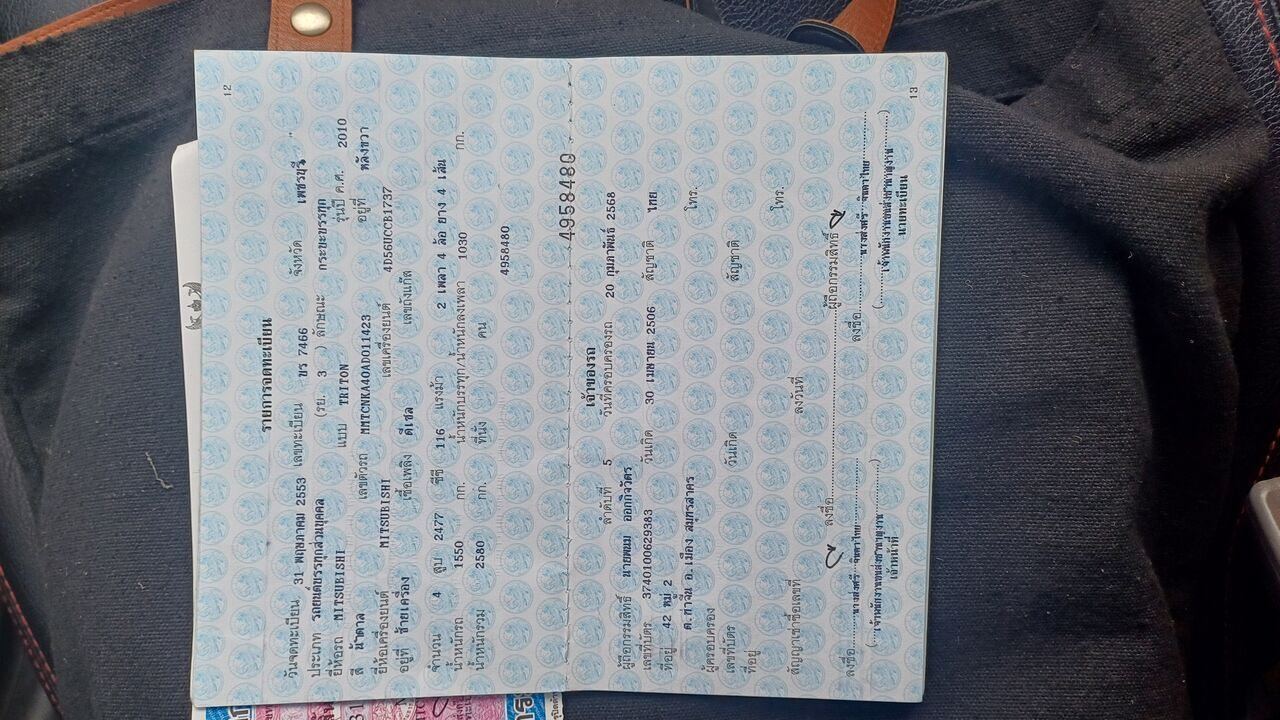 12
รายการจดทะเบียน
วันจดทะเบียน 31 พฤษภาคม 2553 เลขทะเบียน บร 7466 จังหวัด เพชรบุรี "
ประเภท รถยนต์บรรทุกส่วนบุคคล (รย. 3 ) ลักษณะ กระบะบรรทุก
ยี่ห้อรถ MITSUBISHI แบบ TRITON รุ่นปี ค.ศ. 2010
สี น้ำตาล เลขตัวรถ MMTCNKA40AD011423 อยู่ที่ หลังขวา
ยี่ห้อเครื่องยนต์ MITSUBISHI เลขเครื่องยนต์ 4D56UCCB1737
อยู่ที่ ซ้ายเครื่อง เชื้อเพลิง ดีเซล เลขถังแก๊ส
จำนวน 4 สูบ 2477 ซีซี 116 แรงม้า 2 เพลา 4 ล้อ ยาง 4 เส้น
น้ำหนักรถ 1550 กก. น้ำหนักบรรทุก/น้ำหนักลงเพลา 1030 กก.
น้ำหนักรวม 2580 กก. ที่นั่ง คน
4958480
4958480
เจ้าของรถ
ลำดับที่ 5 วันที่ครอบครองรถ 20 กุมภาพันธ์ 2568
ผู้ถือกรรมสิทธิ์ นายพนม ออกกิจวัตร
เลขที่บัตร 3740100629383 วันเกิด 30 เมษายน 2506 สัญชาติ ไทย
ที่อยู่ 42 หมู่ 2 โทร.
ต.ท่าจีน อ.เมือง สมุทรสาคร
ผู้ครอบครอง
เลขที่บัตร วันเกิด สัญชาติ
ที่อยู่ โทร.
สัญญาเช่าซื้อเลขที่ ลงวันที่
ลงชื่อ ผู้ถือกรรมสิทธิ์
ลงชื่อ ลงชื่อ
เจ้าหน้าที่ นายทะเบียน
13